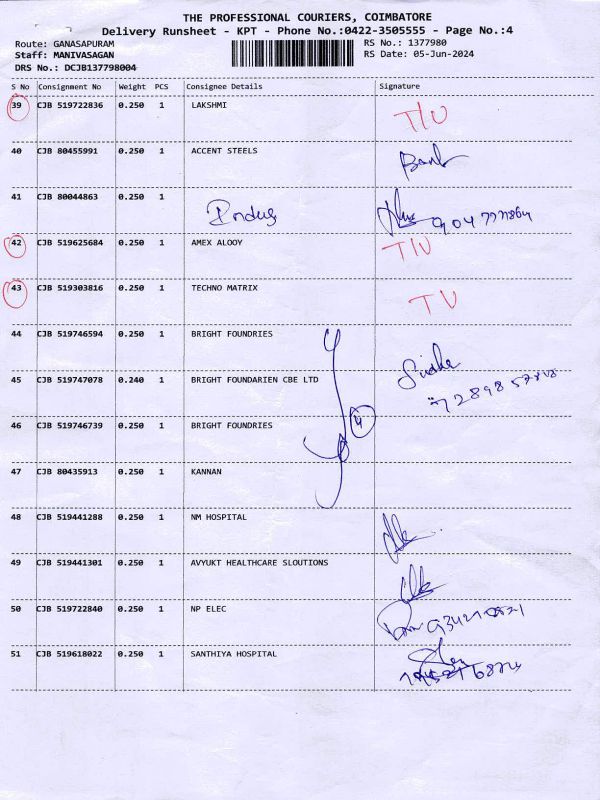 THE PROFESSIONAL COURIERS, COIMBATORE
Delivery Runsheet - KPT - Phone No.:0422-3505555 - Page No.:4
Route: GANASAPURAM
RS No.: 1377980
Staff: MANIVASAGAN
RS Date: 05-Jun-2024
DRS No.: DCJB137798004
S No Consignment No Weight PCS Consignee Details Signature
39 CJB 519722836 0.250 1 LAKSHMI T/U
40 CJB 80455991 0.250 1 ACCENT STEELS
41 CJB 80044863 0.250 1 Indus
42 CJB 519625684 0.250 1 AMEX ALOOY T/U
43 CJB 519303816 0.250 1 TECHNO MATRIX TU
44 CJB 519746594 0.250 1 BRIGHT FOUNDRIES
45 CJB 519747078 0.240 1 BRIGHT FOUNDARIEN CBE LTD
46 CJB 519746739 0.250 1 BRIGHT FOUNDRIES
47 CJB 80435913 0.250 1 KANNAN
48 CJB 519441288 0.250 1 NM HOSPITAL
49 CJB 519441301 0.250 1 AVYUKT HEALTHCARE SLOUTIONS
50 CJB 519722840 0.250 1 NP ELEC
51 CJB 519618022 0.250 1 SANTHIYA HOSPITAL